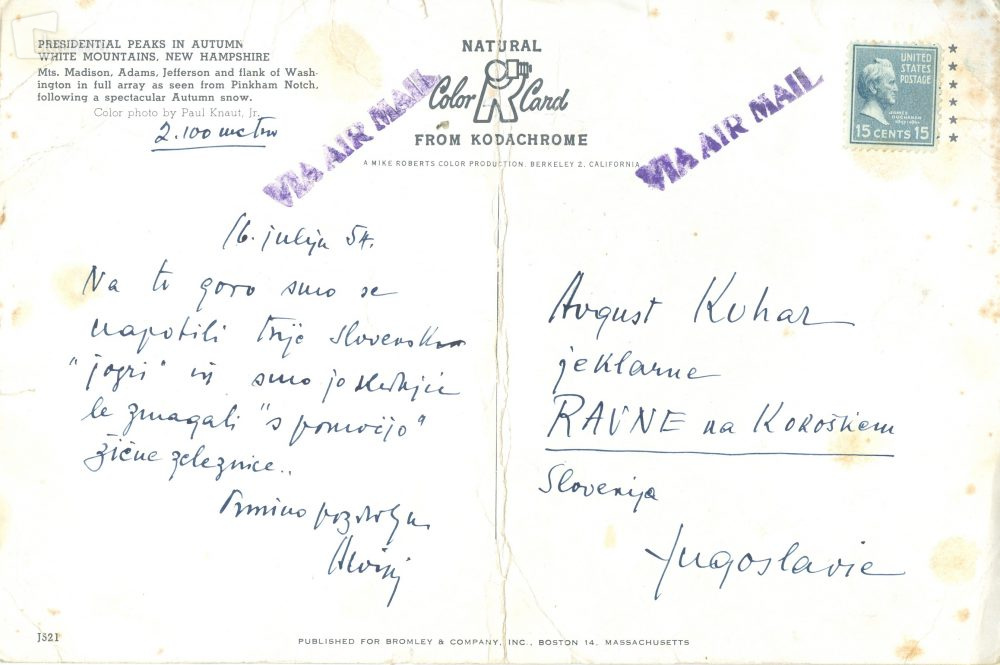 PRESIDENTIAL PEAKS IN AUTUMN
WHITE MOUNTAINS, NEW HAMPSHIRE
Mts. Madison, Adams, Jefferson and flank of Wash-
ington in full array as seen from Pinkham Notch,
following a spectacular Autumn snow.
Color photo by Paul Knaut, Jr.
2.100 metrov
NATURAL
Color Card
FROM KODACHROME
A MIKE ROBERTS COLOR PRODUCTION, BERKELEY 2, CALIFORNIA
VIA AIR MAIL
VIA AIR MAIL
UNITED
STATES
POSTAGE
JAMES
BUCHANAN
15 CENTS 15
16. julija 54.
Na to goro smo se
napotili trije slovenski
"jogri" in smo jo
le zmagali "s pomočjo"
žične železnice..
Avgust Kuhar
jeklarne
RAVNE na Koroškem
Slovenija
Yugoslavie
J521
PUBLISHED FOR BROMLEY & COMPANY, INC., BOSTON 14, MASSACHUSETTS